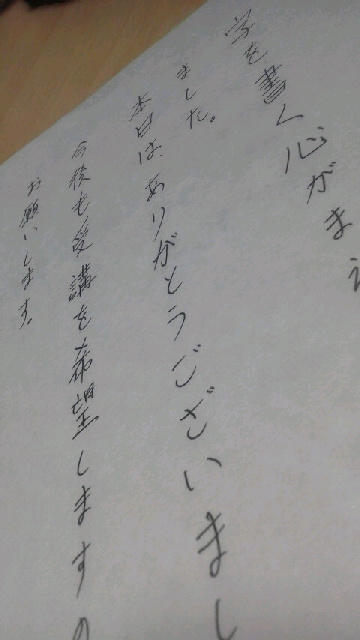 字を書く心がま
ました。
本日は、ありがとうございまし
今後も受講を希望しますの
お願いします。